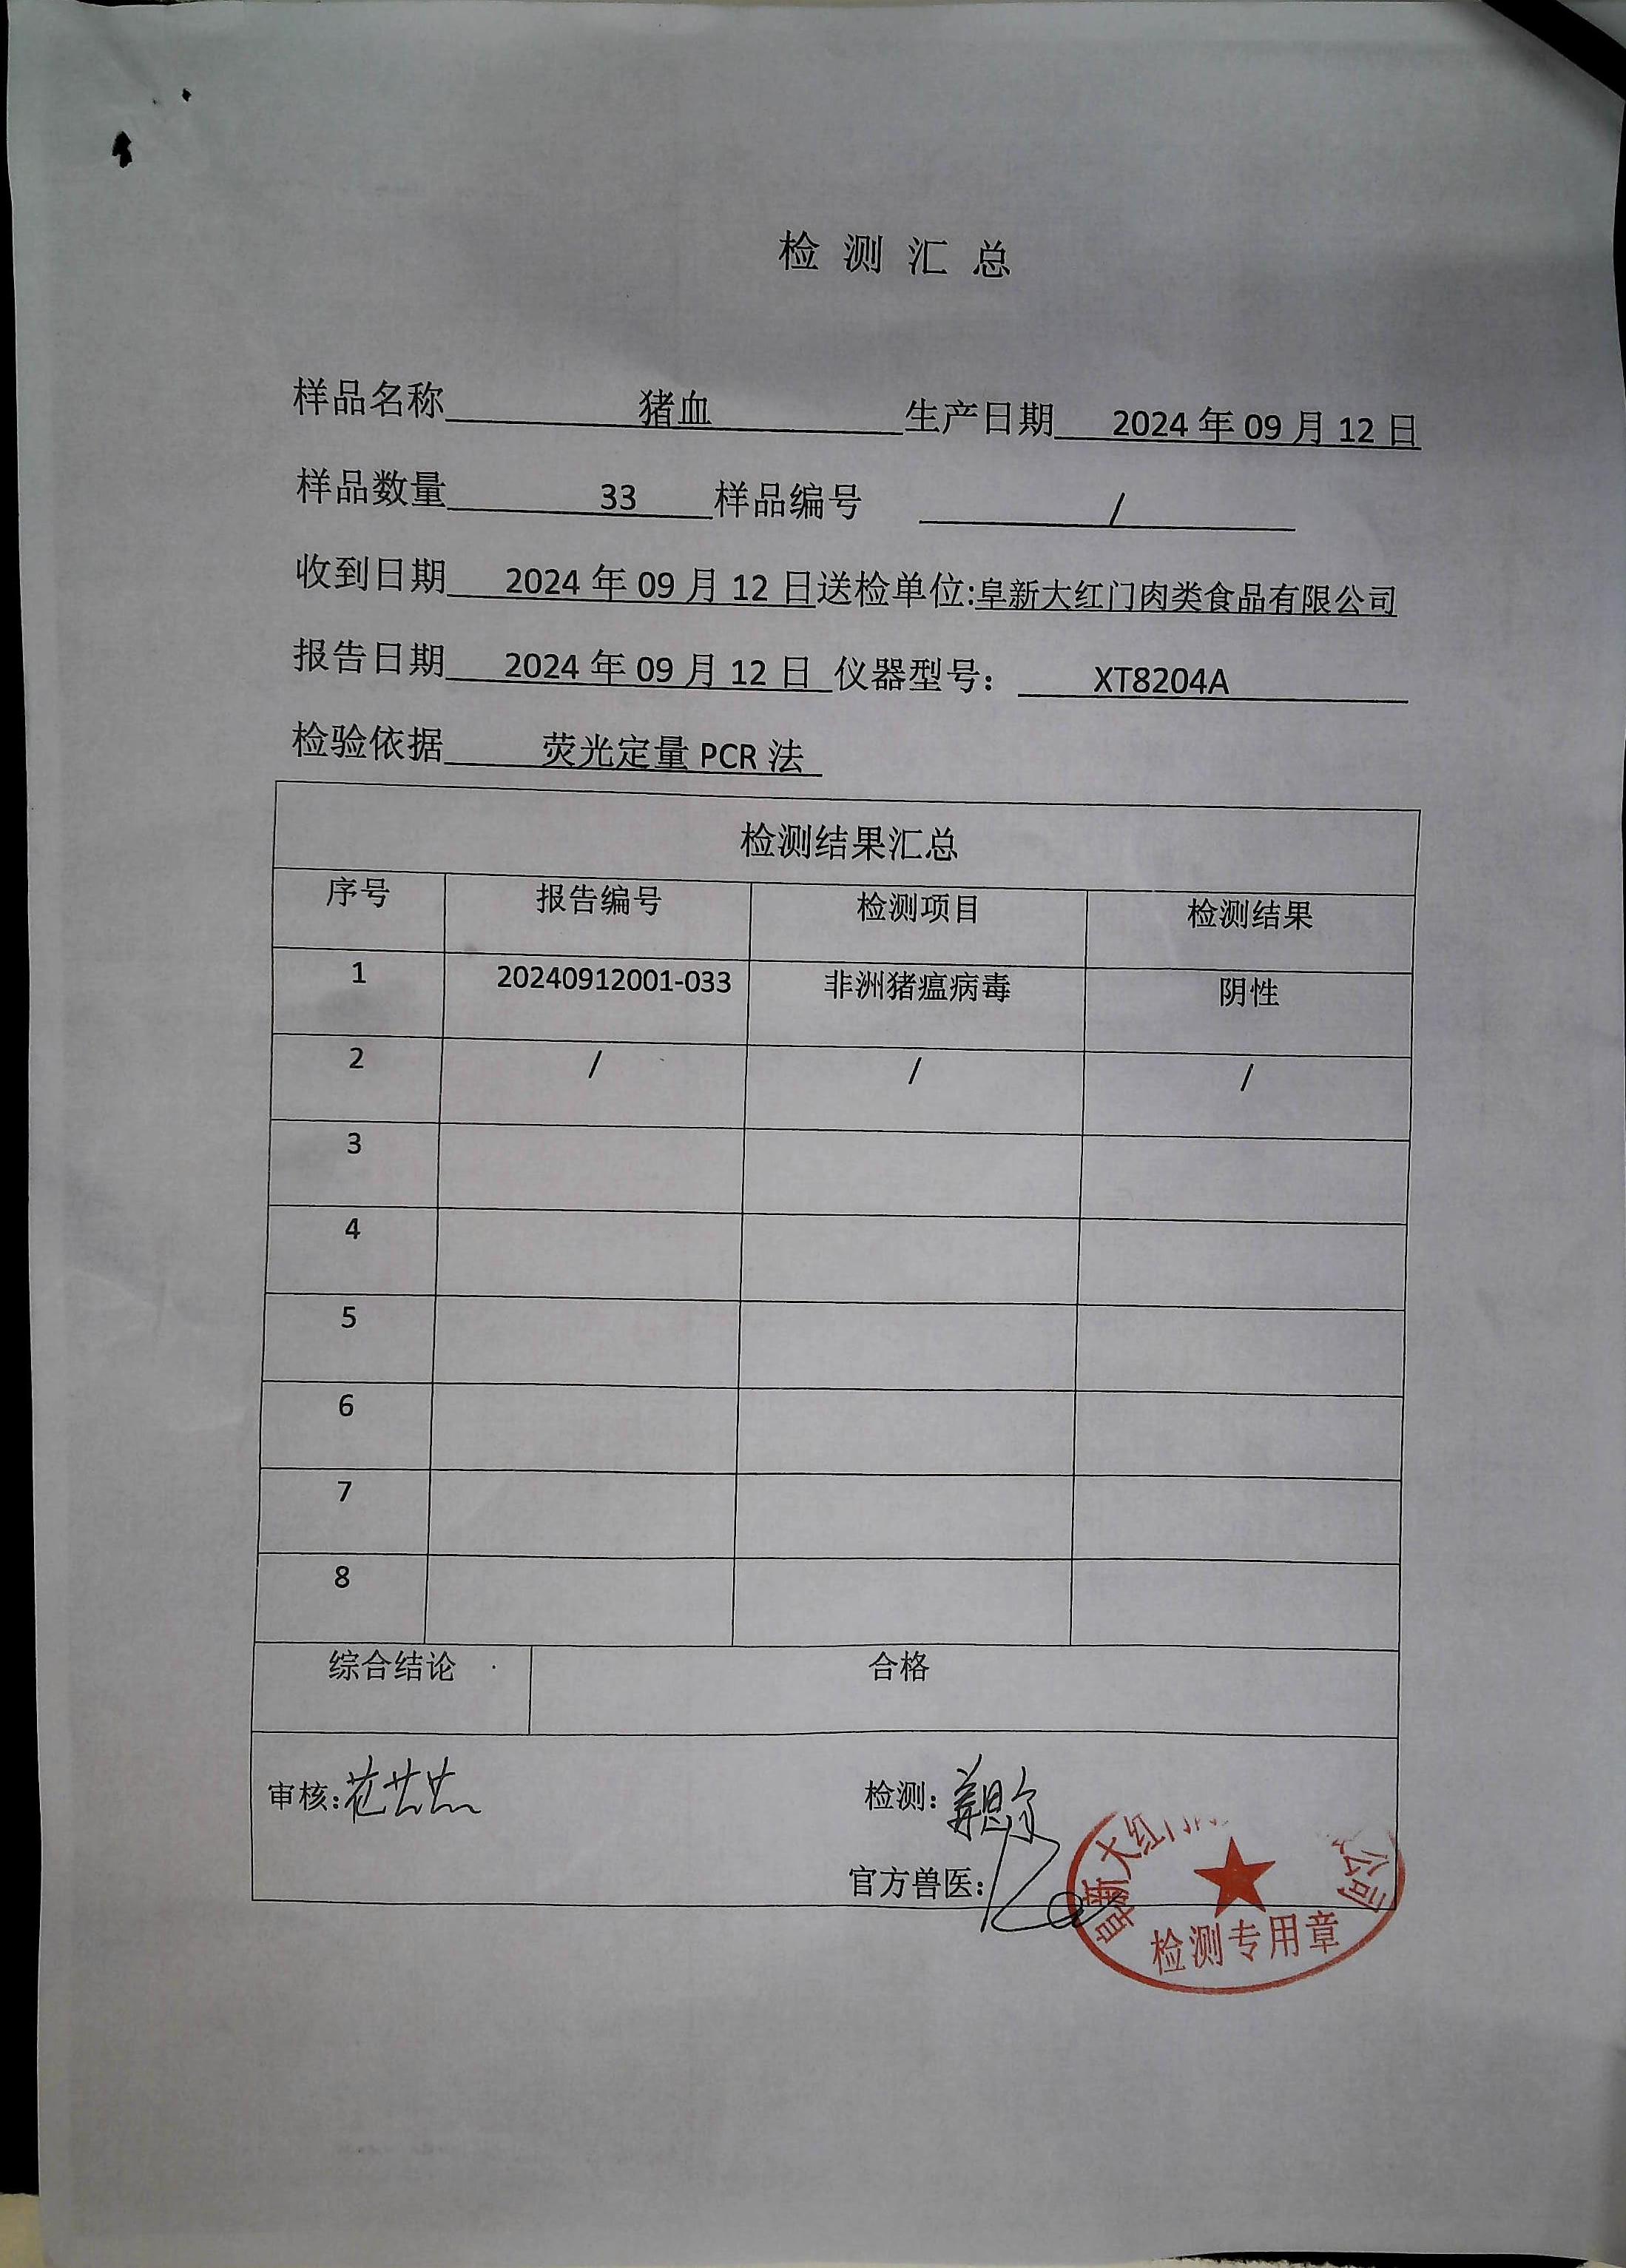 检测汇总
样品名称 猪血 生产日期 2024年09月12日
样品数量 33 样品编号 /
收到日期 2024年09月12日送检单位:阜新大红门肉类食品有限公司
报告日期 2024年09月12日 仪器型号: XT8204A
检验依据 荧光定量PCR法
检测结果汇总
序号 报告编号 检测项目 检测结果
1 20240912001-033 非洲猪瘟病毒 阴性
2 / / /
3
4
5
6
7
8
综合结论 合格
审核: 检测:
官方兽医:
阜新大红门 公司
检测专用章